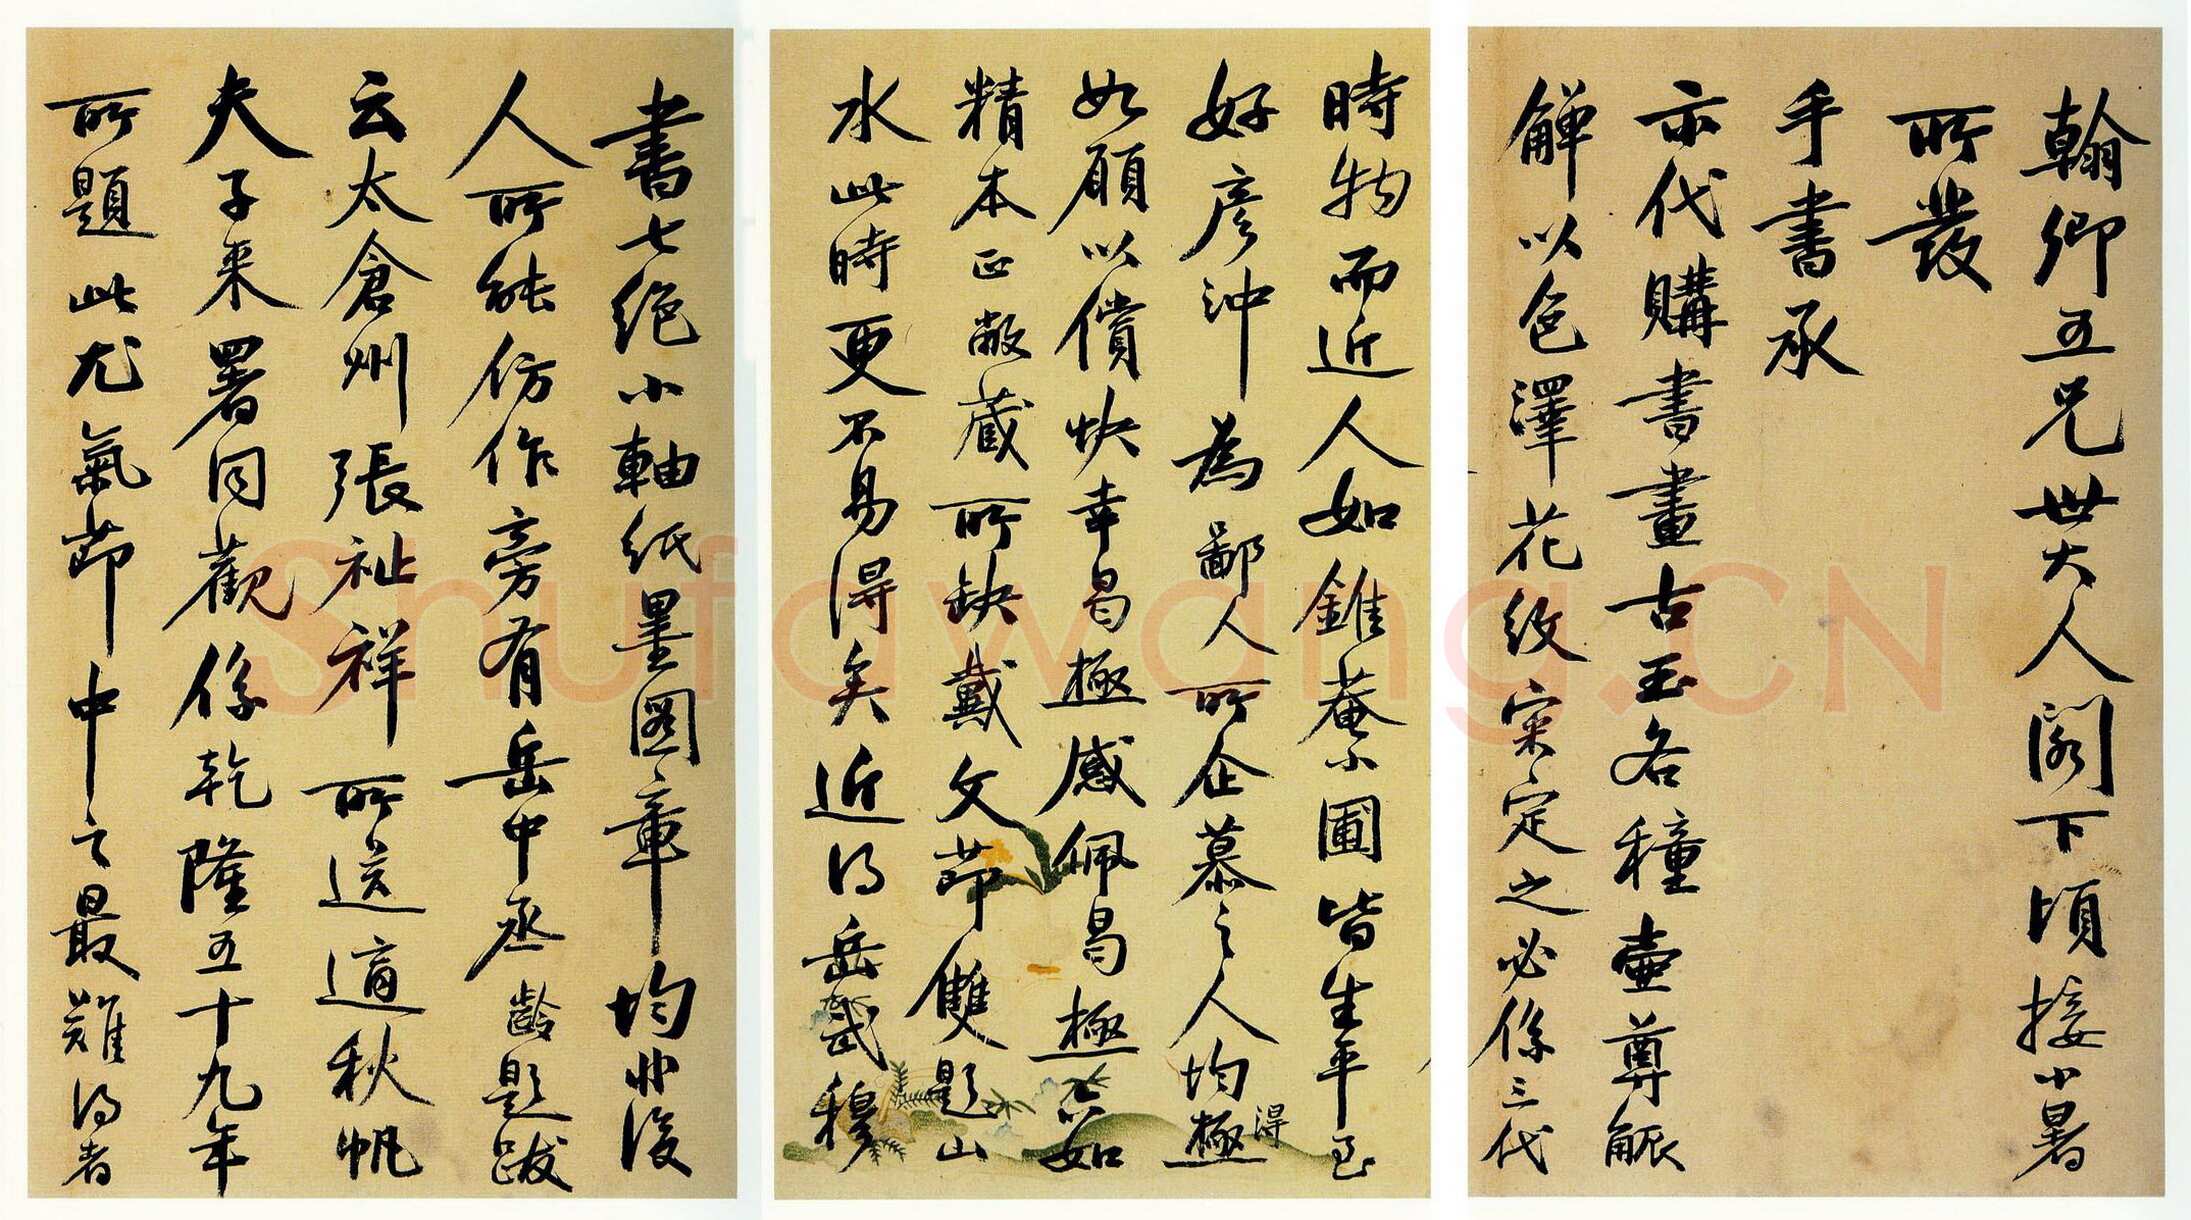 翰卿五兄世大人閣下頃接小暑
所發
手書承
示代購書畫古玉各種壺尊觚
觶以色澤花紋案定之必係三代
時物而近人如錐菴小圃皆生平至
好彥沖為鄙人所企慕之人均極
得
如願以償快幸曷極感佩曷極六如
精本正敝藏所缺戴文節雙題山
水此時更不易得矣近得岳武穆
書七絕小軸紙墨圖章均非後
人所能仿作旁有岳中丞齡題跋
云太倉州張祉祥所送適秋帆
夫子來署同觀係乾隆五十九年
所題此尤氣節中之最難得者
Shufawang.CN